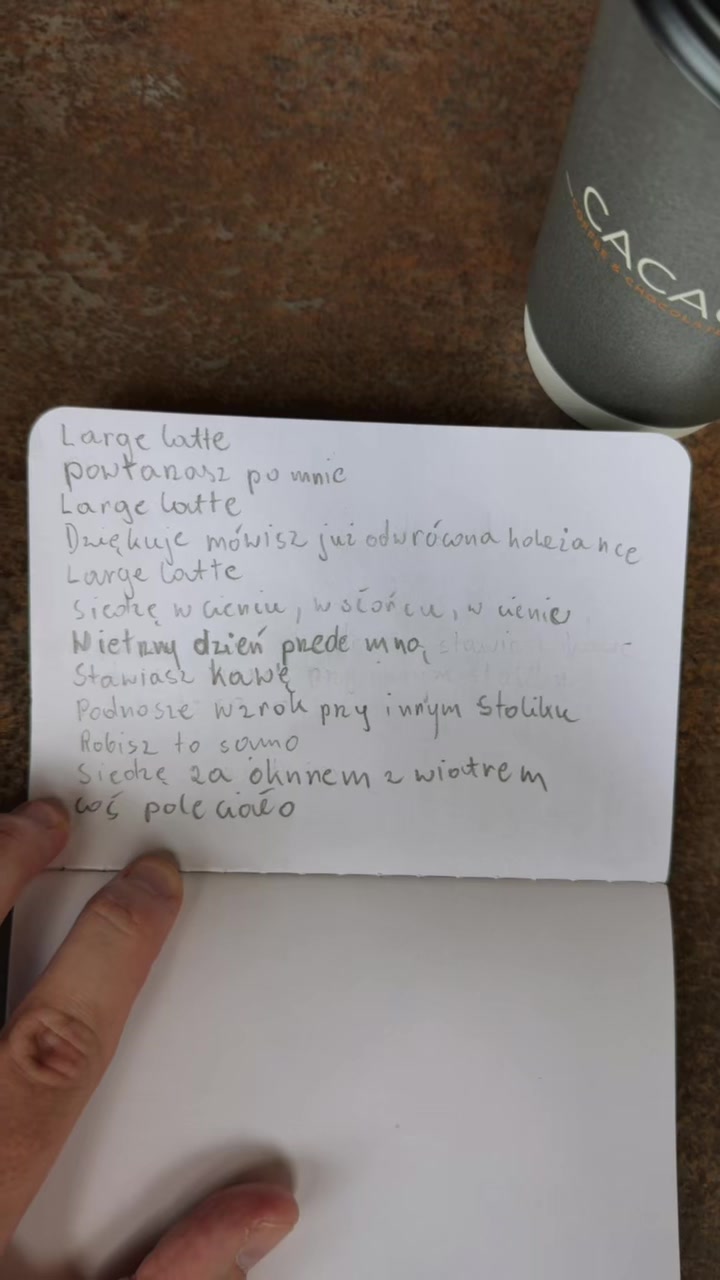 CACAO
COFFEE & CHOCOLATE
Large latte
powtarzasz po mnie
Large latte
Dziękuje mówisz już odwrócona koleżance
Large latte
Siedzę w cieniu, w słońcu, w cieniu
Wietrzny dzień przede mną
Stawiasz kawę
Podnoszę wzrok przy innym stoliku
Robisz to samo
Siedzę za oknnem z wiatrem
coś poleciało